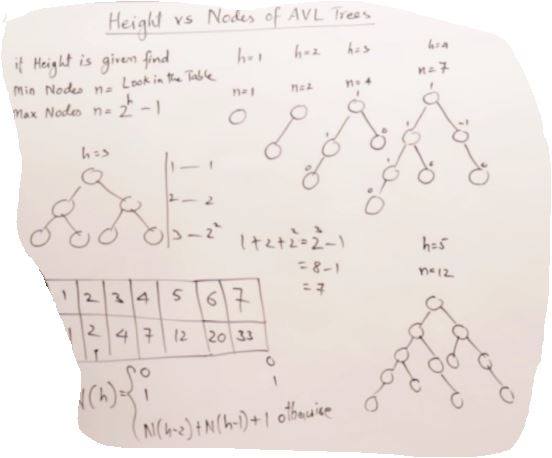 Height vs Nodes of AVL Trees
if Height is given find
Min Nodes n= Look in the Table
Max Nodes n= 2^h - 1
h=1
n=1
h=2
n=2
h=3
n=4
1
1
0
0
h=4
n=7
1
1
-1
1
0
0
0
h=3
1 — 1
2 — 2
3 — 2²
1+2+2²=2³-1
=8-1
=7
h=5
n=12
1 2 3 4 5 6 7
1 2 4 7 12 20 33
N(h)={ 0 0
1 1
N(h-2)+N(h-1)+1 otherwise